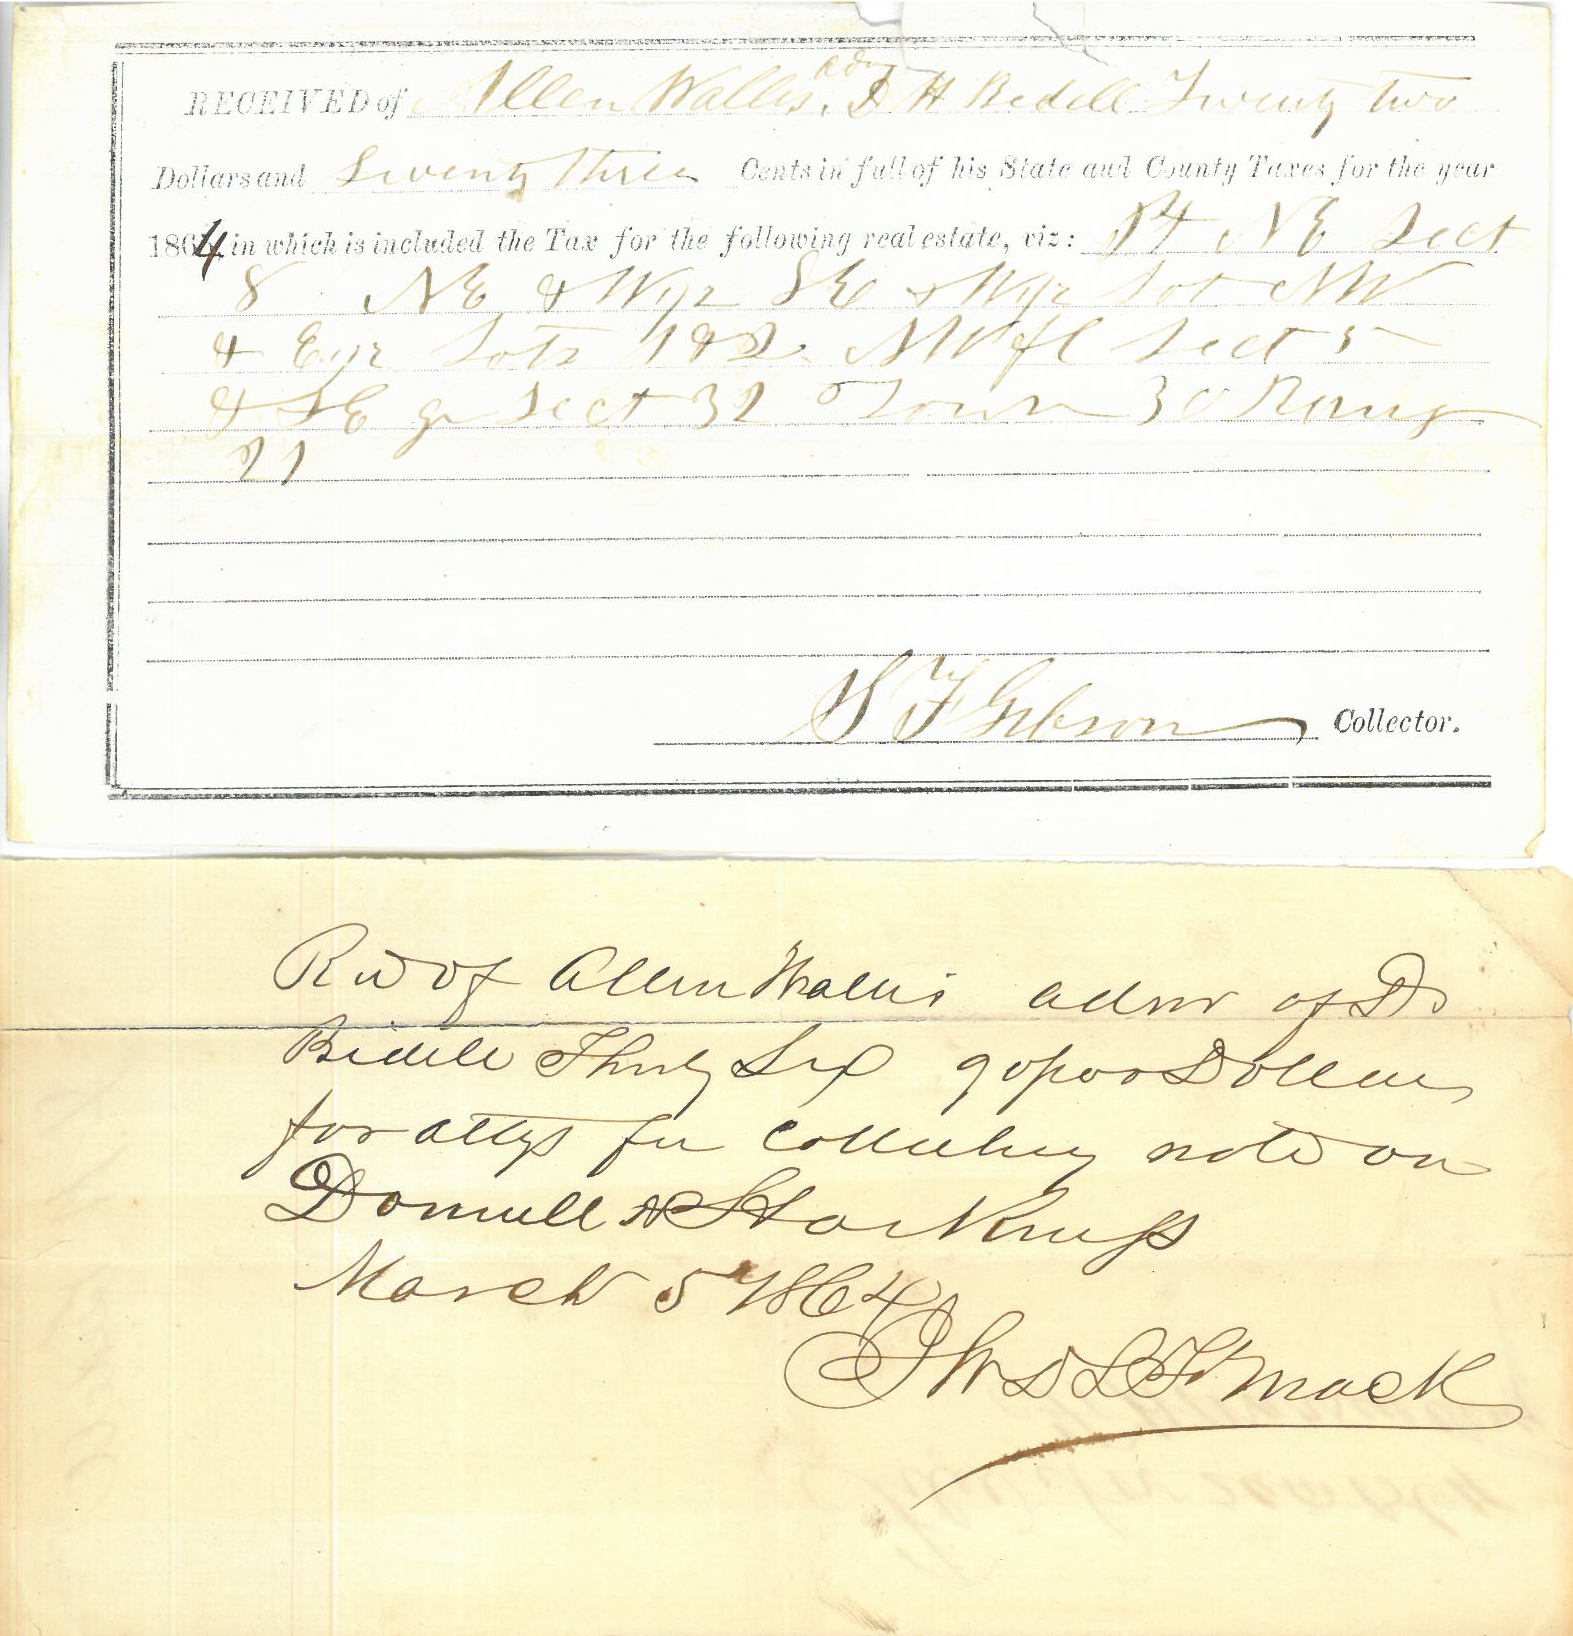 RECEIVED of Allen Wallis, adm D H Bedell Twenty two
Dollars and Seventy three Cents in full of his State and County Taxes for the year
1864, in which is included the Tax for the following real estate, viz: Pt NE Sect
8 NE & W yr SE & W yr Lot NW
& E yr Lots 1 & 2 NW fl Sect 5
& SE qr Sect 32 Town 30 Rang
21
S F Gibson Collector.
of Allen Wallis admr of D
Bedell Thirty Six 90/100 Dollars
for attys fee Collecting note on
Donnell &
March 5 1864